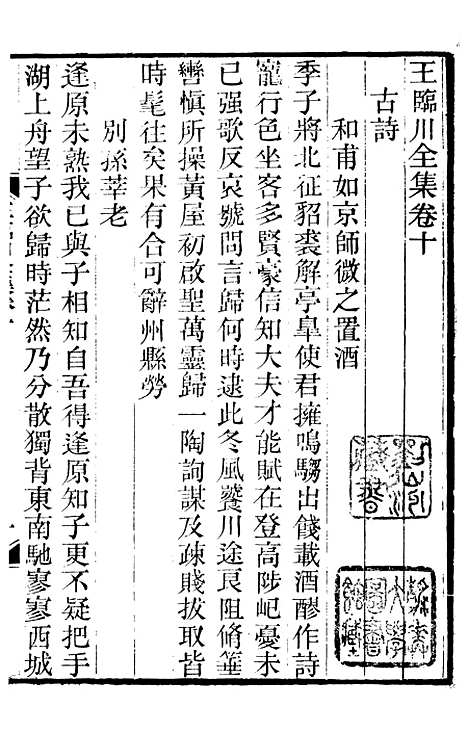 王臨川全集卷十
古詩
和甫如京師微之置酒
季子將北征貂裘解亭皐使君擁鳴騶出餞載酒醪作詩
寵行色坐客多賢豪信知大夫才能賦在登高陟屺憂未
已强歌反哀號問言歸何時逮此冬風饕川途良阻脩華
轡愼所操黃屋初啟聖萬靈歸一陶詢謀及疎賤拔取皆
時髦往矣果有合可辭州縣勞
別孫莘老
逢原未熟我已與子相知自吾得逢原知子更不疑把手
湖上舟望子欲歸時茫然乃分散獨背東南馳寥寥西城